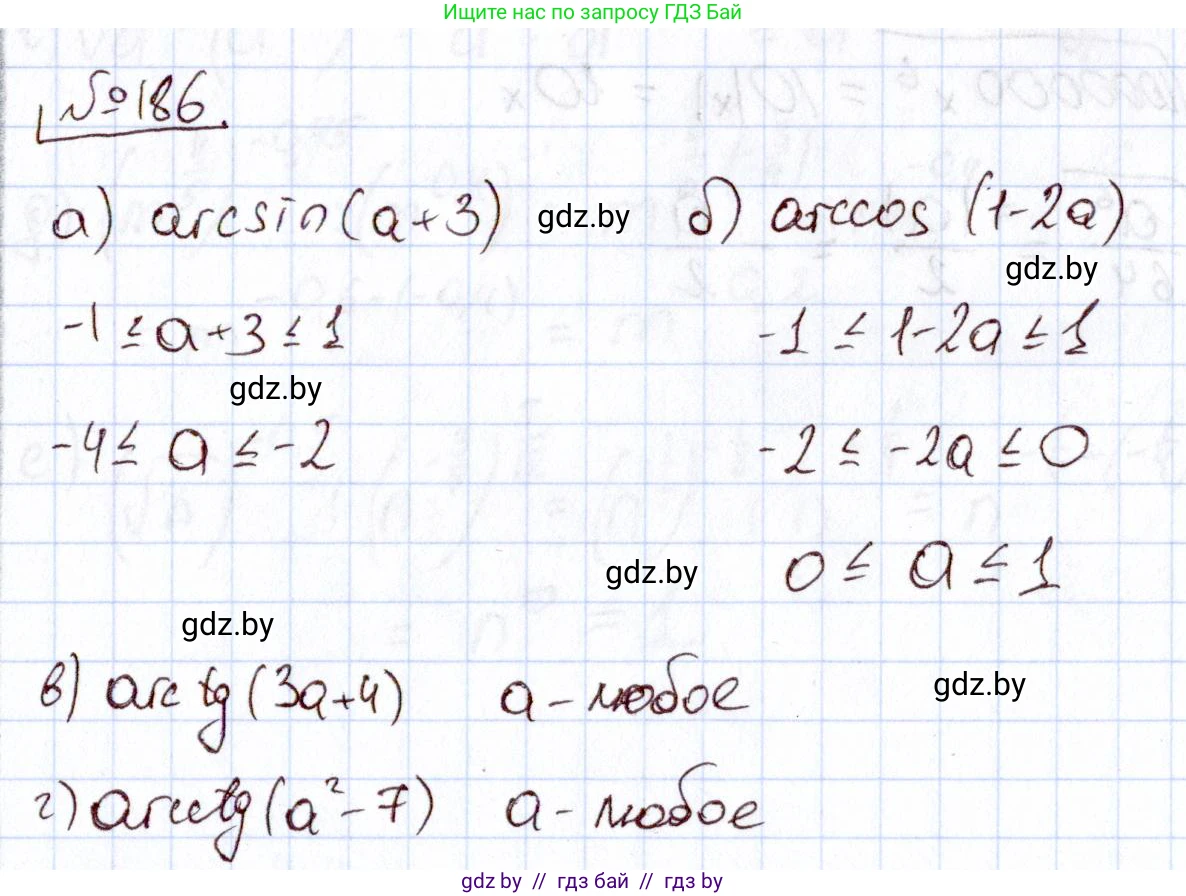 Ищите нас по запросу ГДЗ Бай
№186
а) arcsin(a+3) gdz.by б) arccos (1-2a)
gdz.by
-1 ≤ a+3 ≤ 1 -1 ≤ 1-2a ≤ 1
gdz.by
-4 ≤ a ≤ -2 -2 ≤ -2a ≤ 0
gdz.by 0 ≤ a ≤ 1
gdz.by
в) arctg(3a+4) a - любое gdz.by
г) arcctg(a²-7) a - любое
gdz.by // гдз бай // гдз by